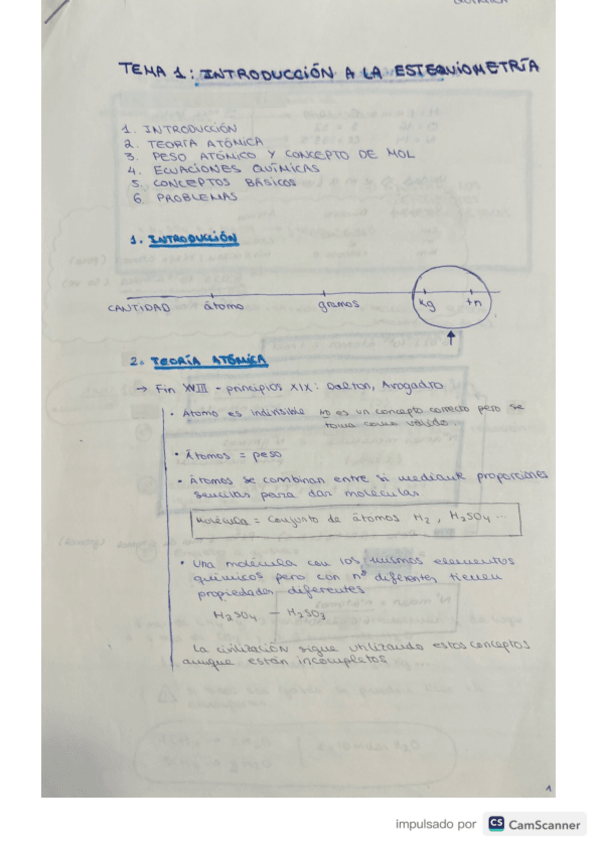 QUÍMICA
TEMA 1: INTRODUCCIÓN A LA ESTEQUIOMETRÍA
1. INTRODUCCIÓN
2. TEORÍA ATÓMICA
3. PESO ATÓMICO Y CONCEPTO DE MOL
4. ECUACIONES QUÍMICAS
5. CONCEPTOS BÁSICOS
6. PROBLEMAS
1. INTRODUCCIÓN
CANTIDAD átomo gramos kg tn
2. TEORÍA ATÓMICA
→ Fin XVIII - principios XIX: Dalton, Avogadro
• Átomo es indivisible NO es un concepto correcto pero se
toma como válido.
• Átomos = peso
• Átomos se combinan entre si mediante proporciones
sencillas para dar moléculas
Molécula = Conjunto de átomos H2, H2SO4 ...
• Una molécula con los mismos elementos
químicos pero con nº diferentes tienen
propiedades diferentes
H2SO4 — H2SO3
La civilización sigue utilizando estos conceptos
aunque están incompletos
1
impulsado por CS CamScanner